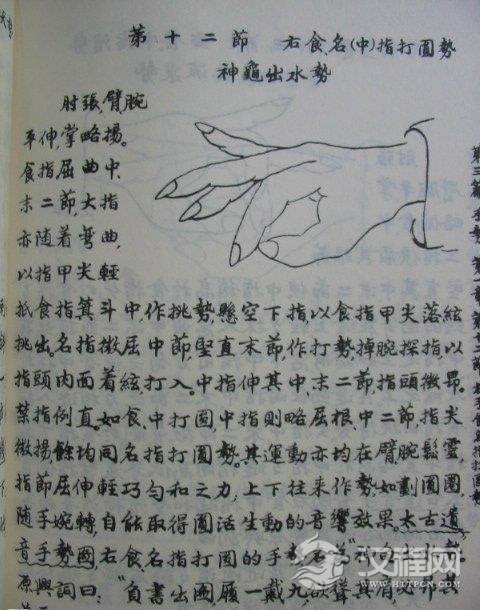 第十二節 右食、名(中)指打圓勢
神龜出水勢
肘張,臂,腕
平伸,掌略揚。
食指屈曲中、
末二節,大指
亦随着弯曲,
以指甲尖輕
抵食指箕斗中,作挑勢懸空下指,以食指甲尖落絃
挑出。名指微屈中節,堅直末節作打勢,掉腕探指,以
指頭肉面着絃,打入。中指伸其中、末二節,指頭微昂。
禁指例直。如食、中打圓,中指則略屈根、中二節,指尖
微揚,餘均同名指打圓勢。其運動亦均在臂,腕鬆靈,
指節屈伸輕巧匀和之力,上下往来作勢,如劃圓圈,
随手婉轉,自能取得圓活生動的音響效果。太古遺
音手勢圖,右食名指打圓的手勢名為"神龜出水勢
原興詞曰:"負書出
第三篇
汉程网